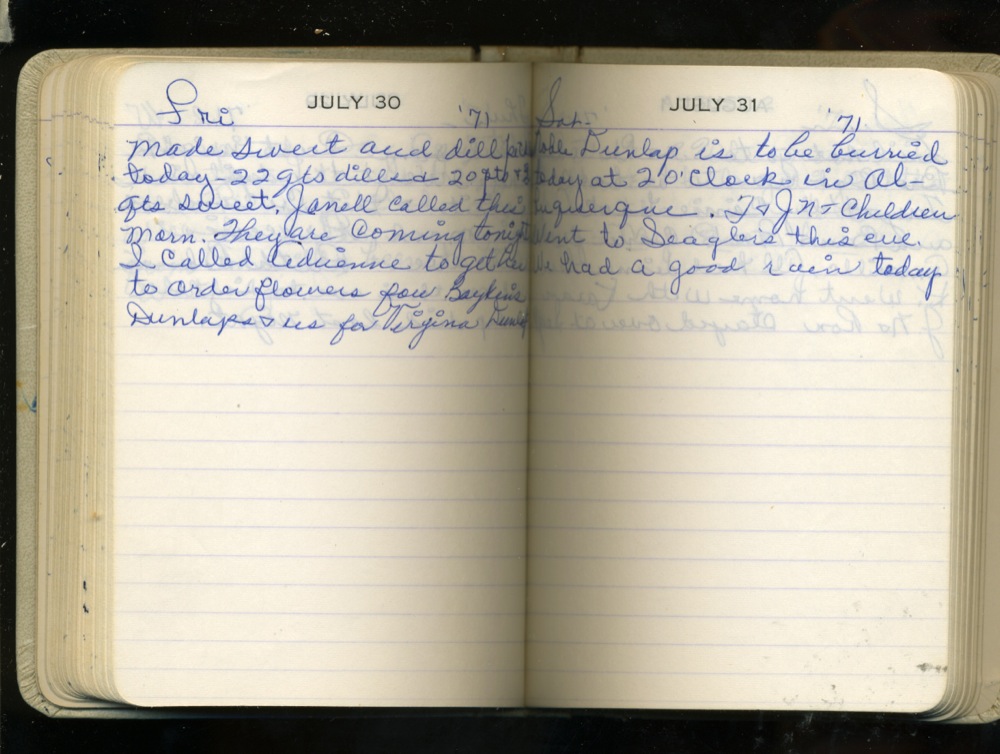 JULY 30
Fri '71
Made sweet and dill
today - 22 qts dilled 20 pts
qts sweet. Janell called this
morn. They are coming tonight
I called to get her
to order flowers for Baykins
Dunlaps & us for Virgina Dunlap
JULY 31
Sat. '71
Dunlap is to be burried
today at 2 O'Clock in Al-
buquerque. J & JN & Children
went to Seaglers this eve.
We had a good rain today